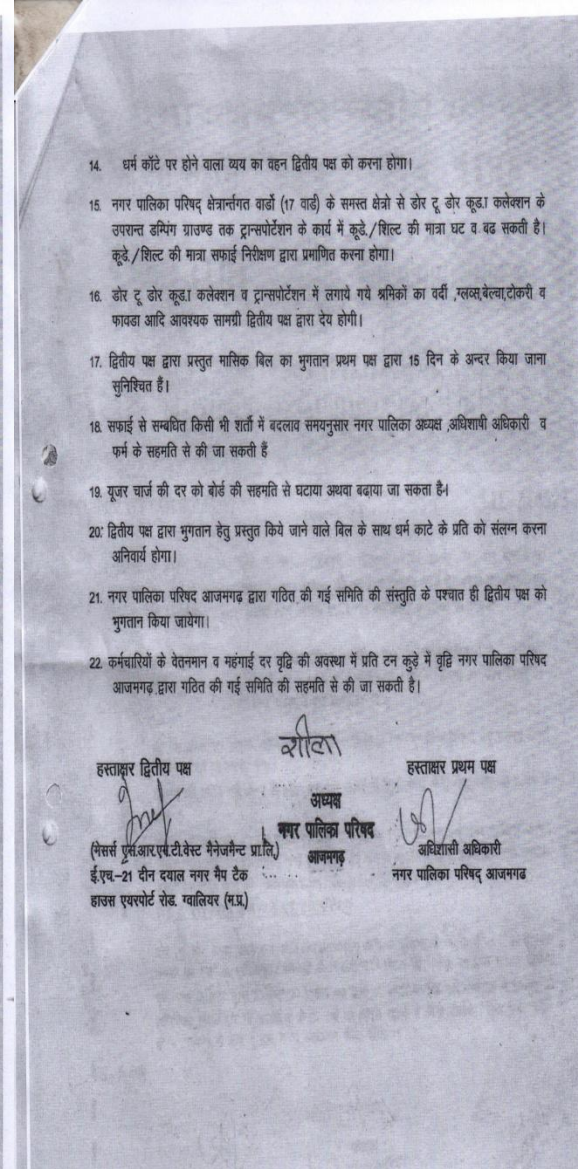 14. धर्म कॉटे पर होने वाला व्यय का वहन द्वितीय पक्ष को करना होगा।
15. नगर पालिका परिषद् क्षेत्रार्न्तगत वार्डो (17 वार्ड) के समस्त क्षेत्रो से डोर टू डोर कूड.ा कलेक्शन के
उपरान्त डम्पिंग ग्राउण्ड तक ट्रान्सपोर्टेशन के कार्य में कूडे./शिल्ट की मात्रा घट व बढ सकती है।
कूडे./शिल्ट की मात्रा सफाई निरीक्षण द्वारा प्रमाणित करना होगा।
16. डोर टू डोर कूड.ा कलेक्शन व ट्रान्सपोर्टेशन में लगाये गये श्रमिकों का वर्दी ,ग्लव्स,बेल्चा,टोकरी व
फावडा आदि आवश्यक सामग्री द्वितीय पक्ष द्वारा देय होगी।
17. द्वितीय पक्ष द्वारा प्रस्तुत मासिक बिल का भुगतान प्रथम पक्ष द्वारा 15 दिन के अन्दर किया जाना
सुनिश्चित हैं।
18. सफाई से सम्बधित किसी भी शर्तो में बदलाव समयनुसार नगर पालिका अध्यक्ष ,अधिशाषी अधिकारी व
फर्म के सहमति से की जा सकती हैं
19. यूजर चार्ज की दर को बोर्ड की सहमति से घटाया अथवा बढाया जा सकता है।
20. द्वितीय पक्ष द्वारा भुगतान हेतु प्रस्तुत किये जाने वाले बिल के साथ धर्म काटे के प्रति को संलग्न करना
अनिवार्य होगा।
21. नगर पालिका परिषद आजमगढ़ द्वारा गठित की गई समिति की संस्तुति के पश्चात ही द्वितीय पक्ष को
भुगतान किया जायेगा।
22. कर्मचारियों के वेतनमान व महंगाई दर वृद्वि की अवस्था में प्रति टन कुड़े में वृद्वि नगर पालिका परिषद
आजमगढ़ द्वारा गठित की गई समिति की सहमति से की जा सकती है।
शीला
हस्ताक्षर द्वितीय पक्ष
हस्ताक्षर प्रथम पक्ष
अध्यक्ष
नगर पालिका परिषद
आजमगढ़
(मेसर्स एस.आर.एम.टी.वेस्ट मैनेजमैन्ट प्रा.लि.)
ई.एच.-21 दीन दयाल नगर मैप टैक
हाउस एयरपोर्ट रोड. ग्वालियर (म.प्र.)
अधिशासी अधिकारी
नगर पालिका परिषद् आजमगढ